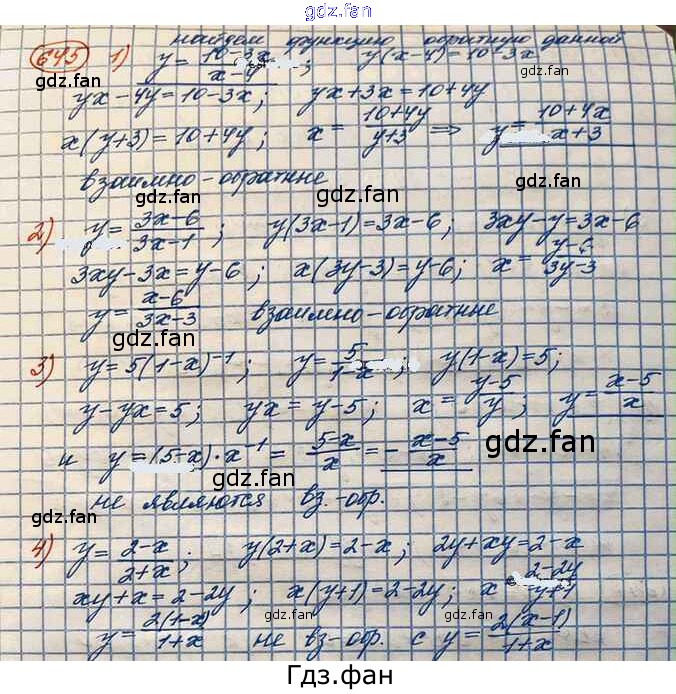 gdz.fan
645 1) найдем функцию обратную данной
y = (10-3x)/(x-4); y(x-4)=10-3x
gdz.fan gdz.fan
yx-4y=10-3x; yx+3x=10+4y
x(y+3)=10+4y; x = (10+4y)/(y+3) ⇒ y = (10+4x)/(x+3)
gdz.fan gdz.fan
взаимно-обратные
gdz.fan
2) y = (3x-6)/(3x-1); y(3x-1)=3x-6; 3xy-y=3x-6
gdz.fan
3xy-3x=y-6; x(3y-3)=y-6; x = (y-6)/(3y-3)
y = (x-6)/(3x-3) взаимно-обратные
gdz.fan gdz.fan
3) y=5(1-x)⁻¹; y = 5/(1-x); y(1-x)=5;
y-yx=5; yx=y-5; x = (y-5)/y; y = (x-5)/x
gdz.fan
и y=(5-x)·x⁻¹ = (5-x)/x = -(x-5)/x
gdz.fan
не являются вз.-обр.
gdz.fan gdz.fan
4) y = (2-x)/(2+x); y(2+x)=2-x; 2y+xy=2-x
xy+x=2-2y; x(y+1)=2-2y; x = (2-2y)/(y+1)
gdz.fan gdz.fan
y = 2(1-x)/(1+x) не вз-обр. с y = 2(x-1)/(1+x)
Гдз.фан